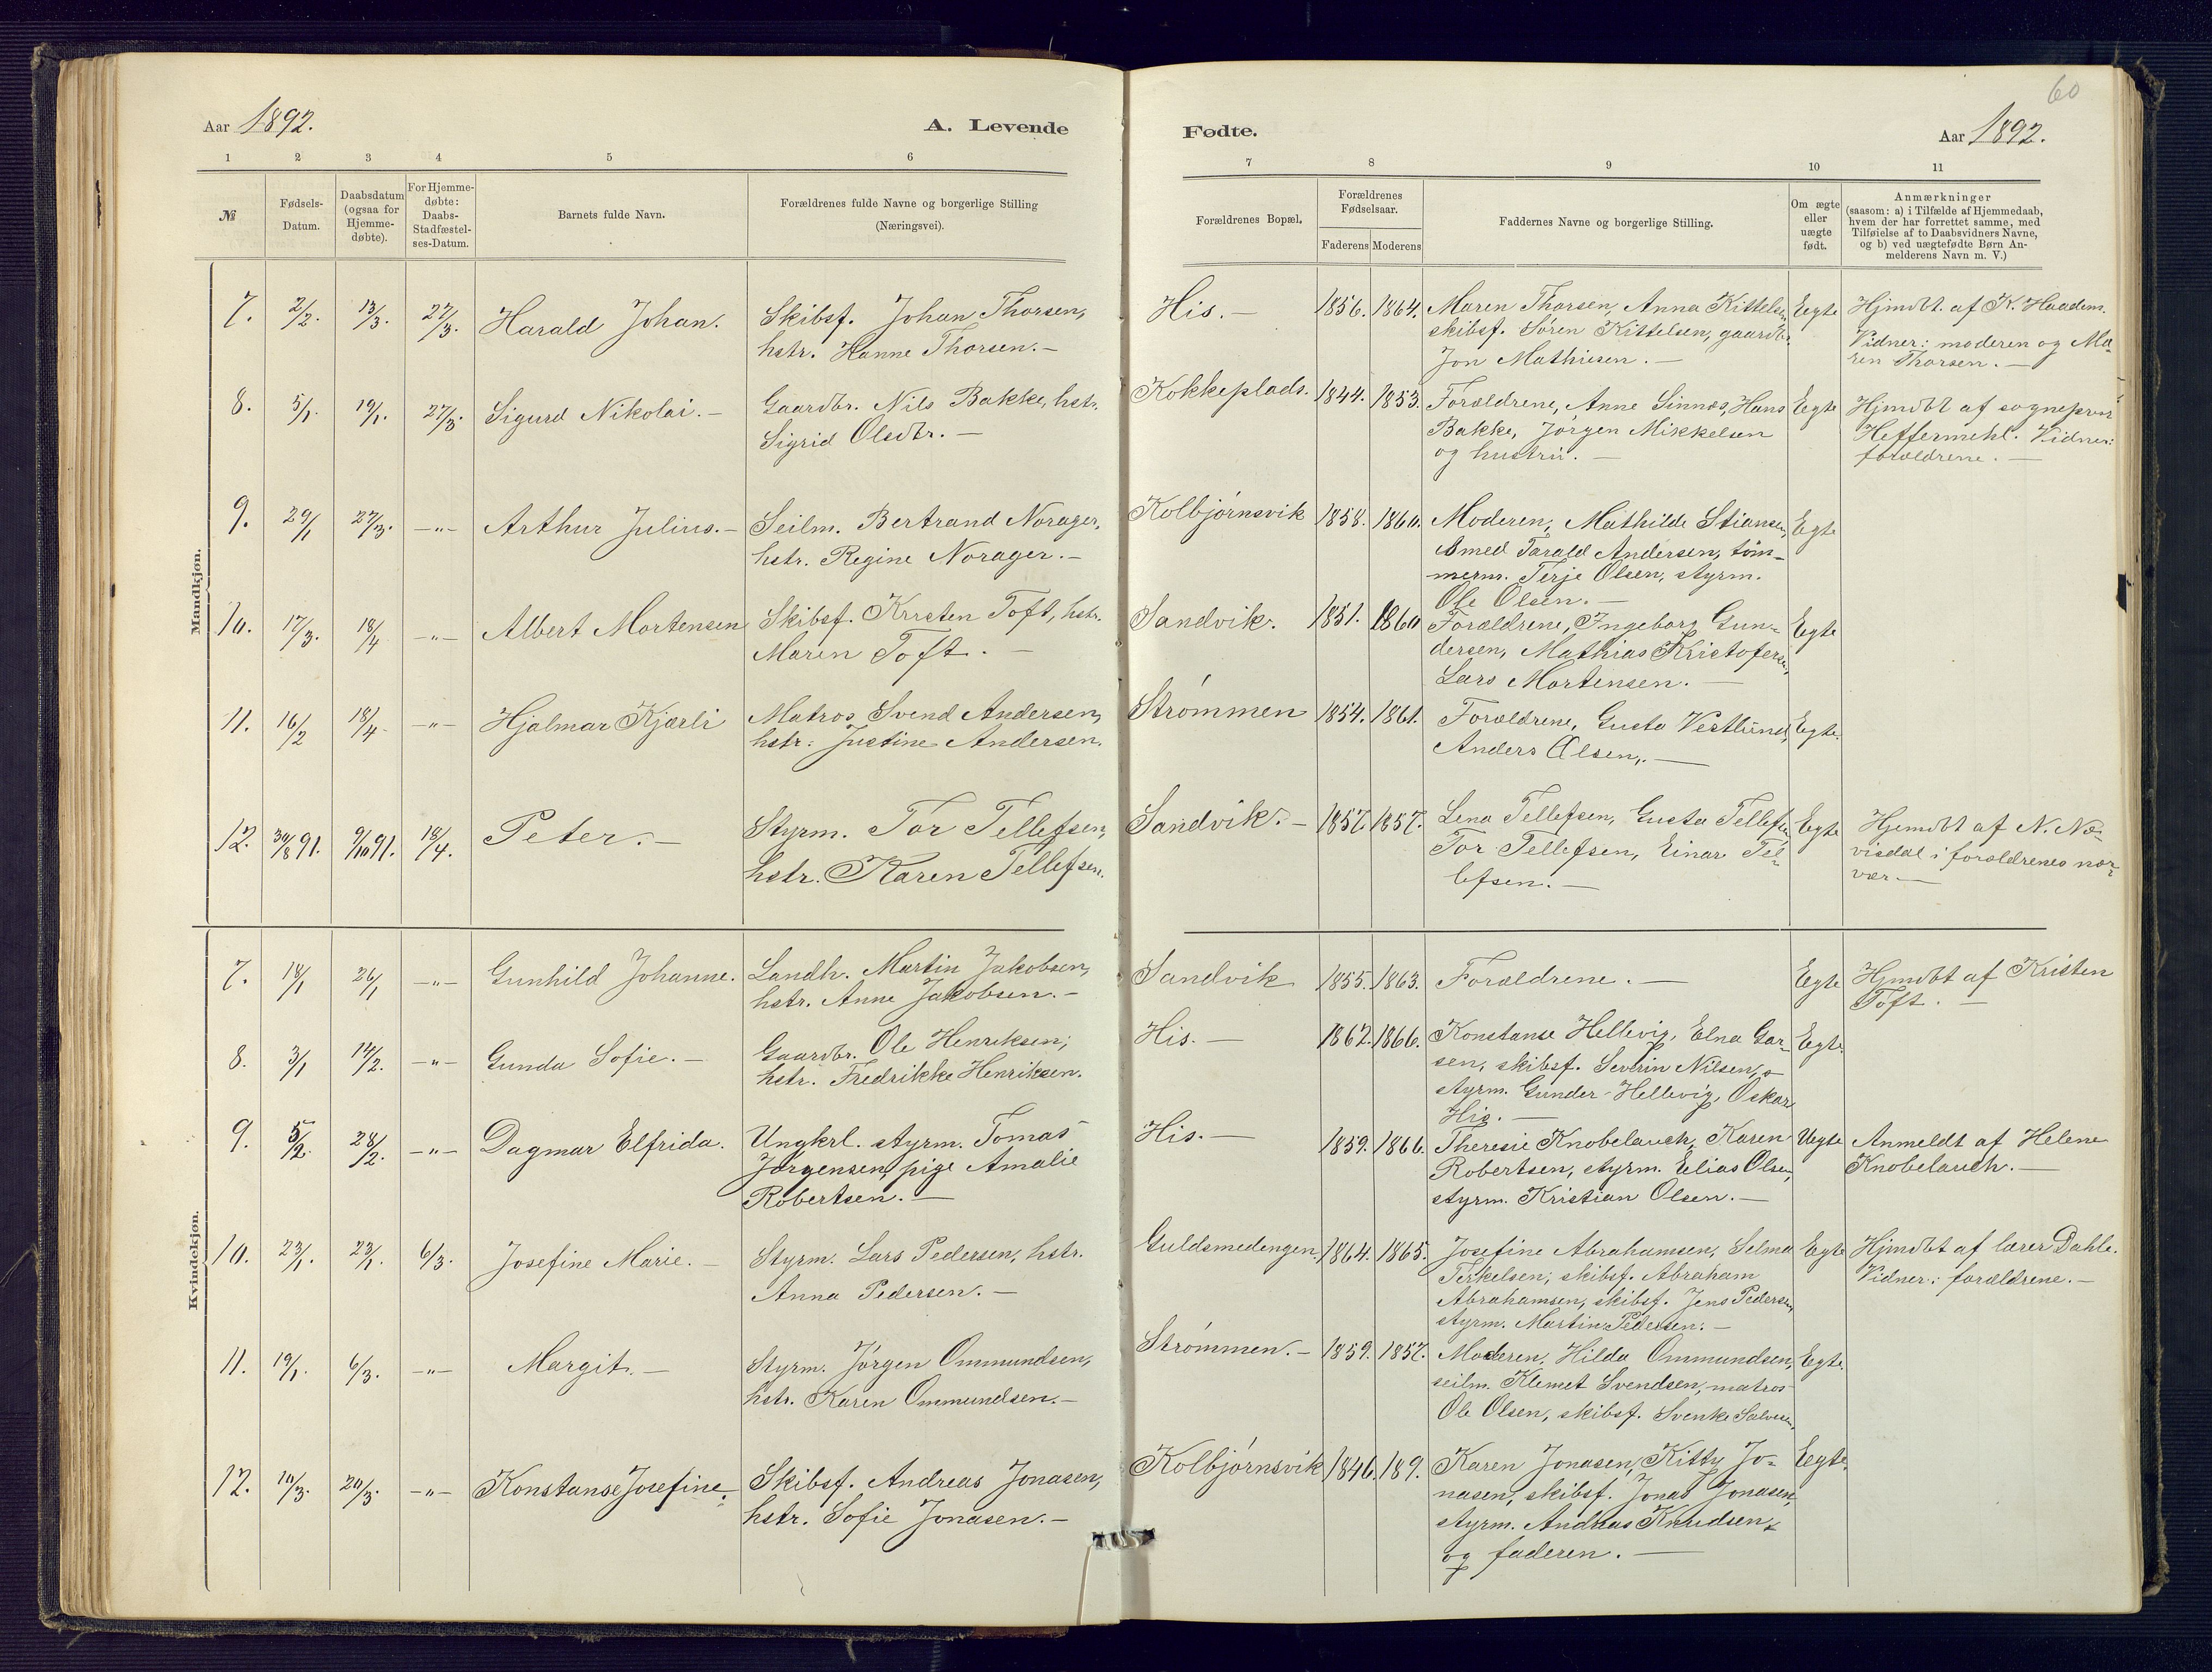 60
Aar 1892.
A. Levende
Fødte.
Aar 1892.
1 2 3 4 5 6 7 8 9 10 11
№
Fødsels-
Datum.
Daabsdatum
(ogsaa for
Hjemme-
døbte).
For Hjemme-
døbte:
Daabs-
Stadfæstel-
ses-Datum.
Barnets fulde Navn.
Forældrenes fulde Navne og borgerlige Stilling
(Næringsvei).
Forældrenes Bopæl.
Forældrenes
Fødselsaar.
Faderens Moderens
Faddernes Navne og borgerlige Stilling.
Om ægte
eller
uægte
født.
Anmærkninger
(saasom: a) i Tilfælde af Hjemmedaab,
hvem der har forrettet samme, med
Tilføielse af to Daabsvidners Navne,
og b) ved uægtefødte Børn An-
melderens Navn m. V.)
Mandkjøn.
7. 2/2. 13/3. 27/3. Harald Johan.
Skibsf. Johan Thorsen,
hstr. Hanne Thorsen.—
His.— 1856. 1864.
Maren Thorsen, Anna Kittelsen
skibsf. Søren Kittelsen, gaardbr.
Jon Mathiesen.—
Eegte
Hjmdbt. af K. Haadem.
Vidner: moderen og Ma-
ren Thorsen.—
8. 5/1. 19/1. 27/3. Sigurd Nikolai.—
Gaardbr. Nils Bakke, hstr.
Sigrid Olsdtr.—
Kokkeplads. 1844. 1853.
Forældrene, Anne Sinnes, Hans
Bakke, Jørgen Mikkelsen
og hustru.—
Eegte
Hjmdbt af sogneprest
Heffermehl. Vidner:
forældrene.—
9. 29/1 27/3. —"— Arthur Julius.—
Seilm. Bertrand Norager,
hstr. Regine Norager.—
Kolbjørnsvik 1858. 1860.
Moderen, Mathilde Stiansen,
smed Tarald Andersen, tøm-
merm. Terje Olsen, styrm.
Ole Olsen.—
Eegte
10. 17/3. 18/4 —"— Albert Mortensen
Skibsf. Kristen Toft, hstr.
Maren Toft.—
Sandvik. 1851. 1860
Forældrene, Ingeborg Gun-
dersen, Mathias Kristofersen,
Lars Mortensen.—
Eegte
11. 16/2 18/4. —"— Hjalmar Kjærli
Matros Svend Andersen,
hstr. Justine Andersen.
Strømmen 1854. 1861.
Forældrene, Gusta Vestlund,
Anders Olsen.—
Eegte.
12. 30/8 91. 9/10 91. 18/4. Peter.—
Styrm. Tor Tellefsen,
hstr. Karen Tellefsen.
Sandvik.— 1857. 1857.
Lena Tellefsen, Gusta Tellefsen,
Tor Tellefsen, Einar Tel-
lefsen.—
Eegte
Hjemdbt af N. Næ-
visdal i forældrenes nær-
vær.—
Kvindekjøn.
7. 18/1 26/1 —"— Gunhild Johanne.
Landh. Martin Jakobsen,
hstr. Anne Jakobsen.—
Sandvik 1855. 1863.
Forældrene.—
Eegte
Hjmdbt af Kristen
Toft.—
8. 3/1 14/2. —"— Gunda Sofie.—
Gaardbr. Ole Henriksen,
hstr. Fredrikke Henriksen.
His.— 1862. 1866.
Konstanse Hellevig, Elna Gar-
sen, skibsf. Severin Nilsen,
styrm. Gunder Hellevig, Oskar
His.—
Eegte.
9. 5/2. 28/2. —"— Dagmar Elfrida.
Ungkrl. styrm. Tomas
Jørgensen, pige Amalie
Robertsen.—
His.— 1859. 1866.
Theresie Knobelauch, Karen
Robertsen, styrm. Elias Olsen,
styrm. Kristian Olsen.—
Uegte
Anmeldt af Helene
Knobelauch.—
10. 23/1. 23/1. 6/3. Josefine Marie.—
Styrm. Lars Pedersen, hstr.
Anna Pedersen.—
Guldsmedengen. 1864. 1865.
Josefine Abrahamsen, Selma
Terkelsen, skibsf. Abraham
Abrahamsen, skibsf. Jens Pedersen,
styrm. Martin Pedersen.—
Eegte
Hjmdbt af lærer Dahle.
Vidner: forældrene.—
11. 19/1. 6/3. —"— Margit.—
Styrm. Jørgen Ommundsen,
hstr. Karen Ommundsen.—
Strømmen.— 1859. 1857.
Moderen, Hilda Ommundsen,
seilm. Klemet Svendsen, matros
Ole Olsen, skibsf. Svenke Salvesen,
Eegte.
12. 10/3. 20/3. —"— Konstanse Josefine.
Skibsf. Andreas Jonasen,
hstr. Sofie Jonasen.—
Kolbjørnsvik 1846. 189.
Karen Jonasen, Kitty Jo-
nasen, skibsf. Jonas Jonasen,
styrm. Andreas Knudsen
og faderen.—
Eegte.